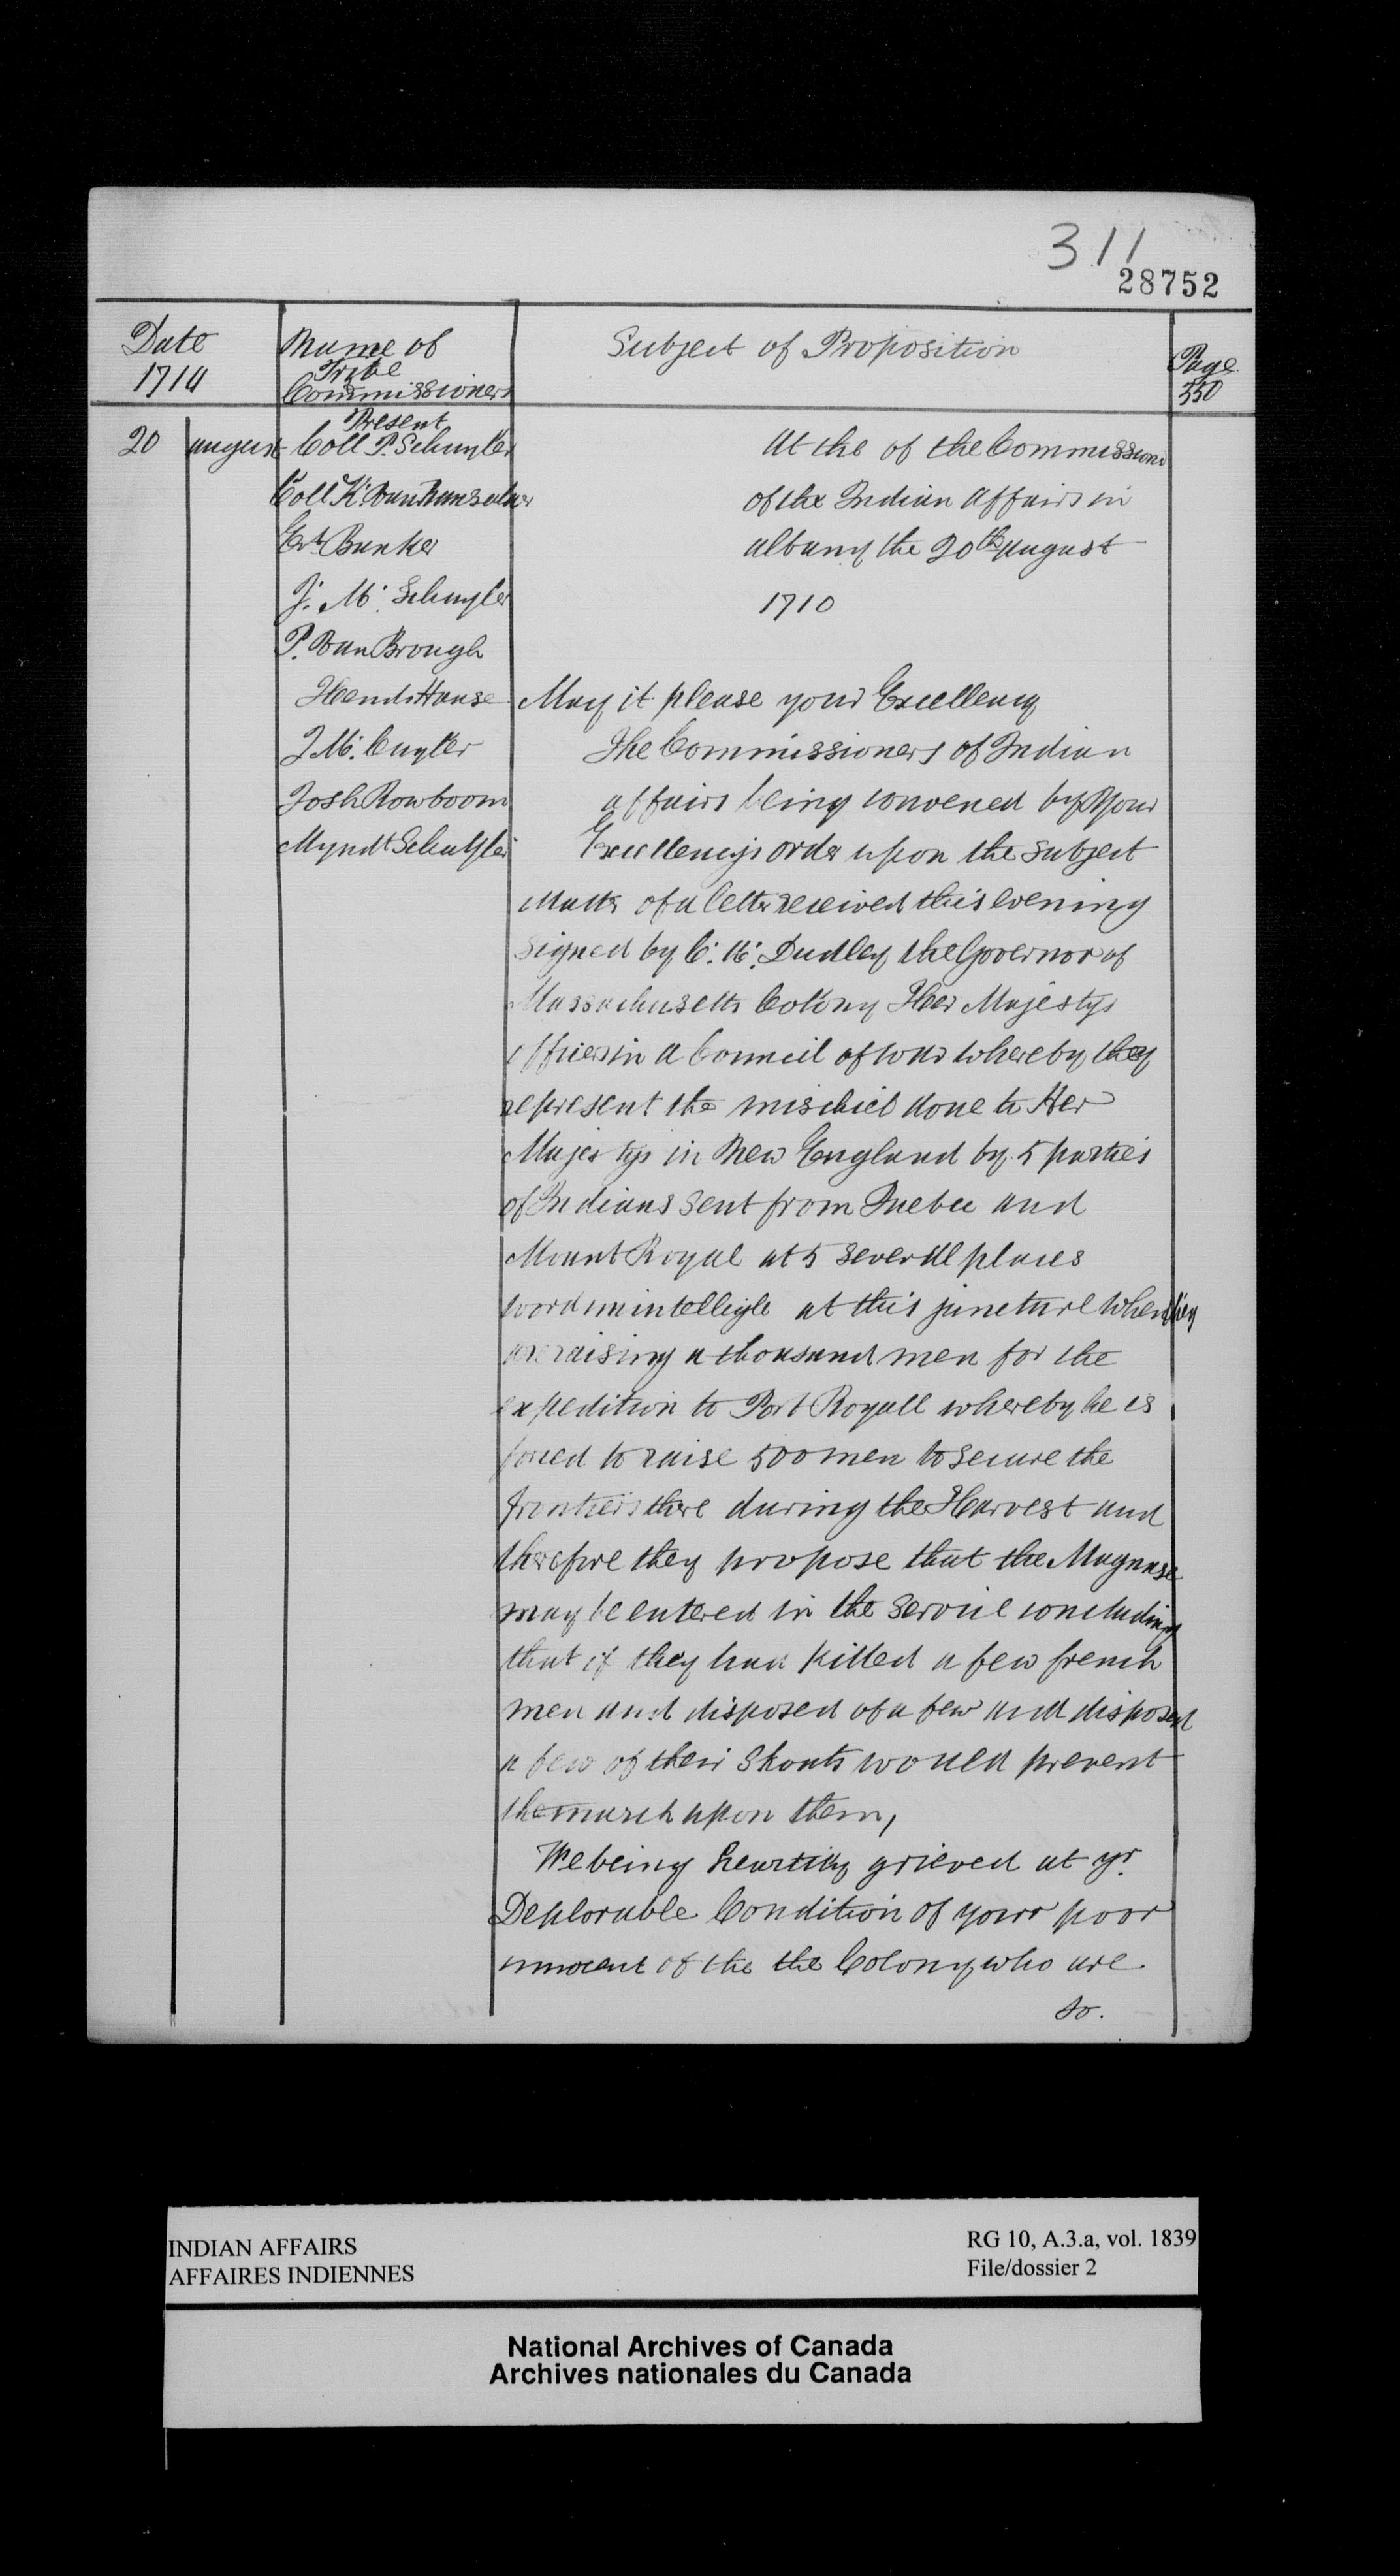 311
28752
Date
1710
Name of
Tribe
Commissioners
Subject of Proposition
Page
350
20 august
Present
Coll P. Schuyler
Coll K. Van Ranselaer
Evt Banker
J. M. Schuyler
P. Van Brough
Hend Hanse
J M. Cuyler
Josh Rowboom
Myndt Schuyler
At the of the Commissions
of the Indian affairs in
albany the 20th august
1710
May it please your Excellency
The Commissioners of Indian
affairs being convened by Your
Excellencys order upon the subject
matter of a letter received this evening
signed by C. W. Dudley the Governor of
Massachusetts Colony Her Majestys
officers in a Council of war whereby they
represent the mischief done to Her
Majestys in New England by 5 parties
of Indians sent from Quebec and
Mount Royal at 5 severall places
word unintelligle at this juncture when they
are raising a thousand men for the
expedition to Port Royall whereby he is
forced to raise 500 men to secure the
frontiers there during the Harvest and
therefore they propose that the Maquase
may be entered in the service concluding
that if they had killed a few french
men and disposed of a few and disposed
a few of their Skouts would prevent
the march upon them,
We being heartily grieved at yr.
Deplorable Condition of your poor
innocent of the the Colony who are
so.
INDIAN AFFAIRS
AFFAIRES INDIENNES
RG 10, A.3.a, vol. 1839
File/dossier 2
National Archives of Canada
Archives nationales du Canada